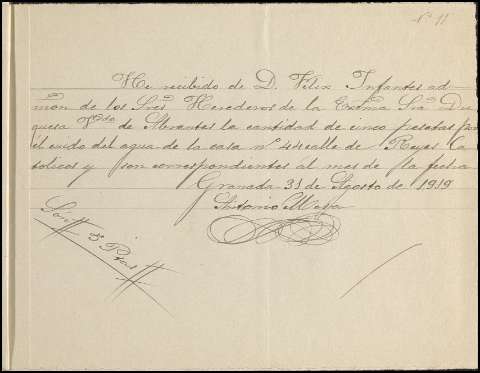 Nº 11
He recibido de D. Félix Infantes ad-
món de los Sres Herederos de la Excma Sra Du
quesa Vda de Abrantes la cantidad de cinco pesetas por
el cuido del agua de la casa nº 44 calle de Reyes Ca
tolicos y son correspondientes al mes de la fecha
Granada 31 de Agosto de 1919
Antonio
Son 5 Ptas